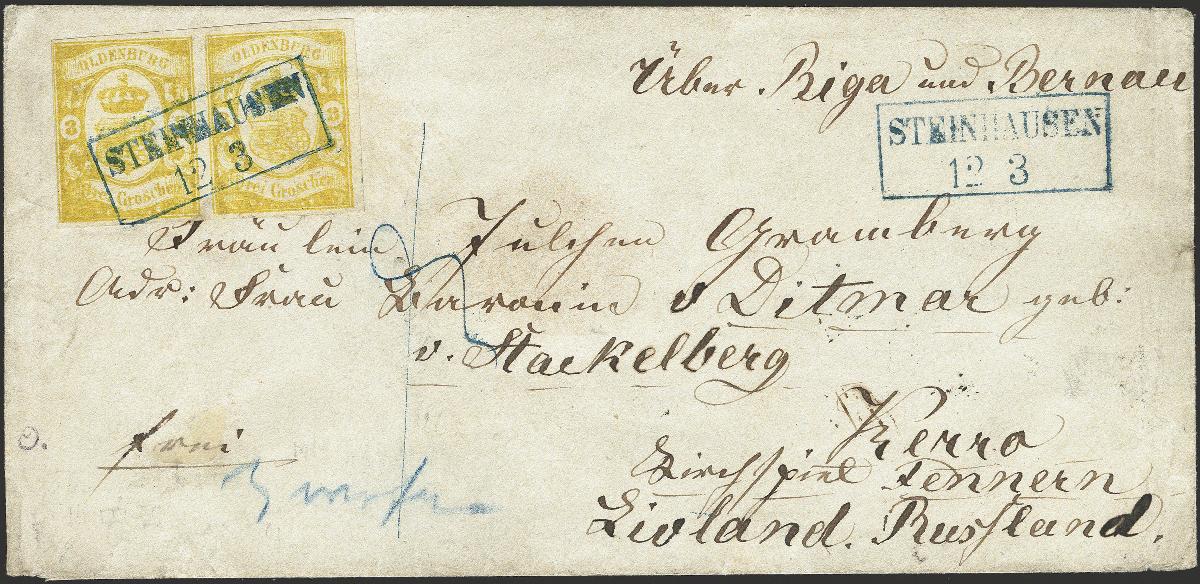 OLDENBURG
3
Drei Groschen
OLDENBURG
3
Drei Groschen
STEINHAUSEN
12 3
Über Riga und Bernau
STEINHAUSEN
12 3
Fräulein Julchen Gramberg
Adr: Frau Baronin v Ditmar geb:
v. Stackelberg
frei
Kerro
Kirchspiel Fennern
Livland. Russland.